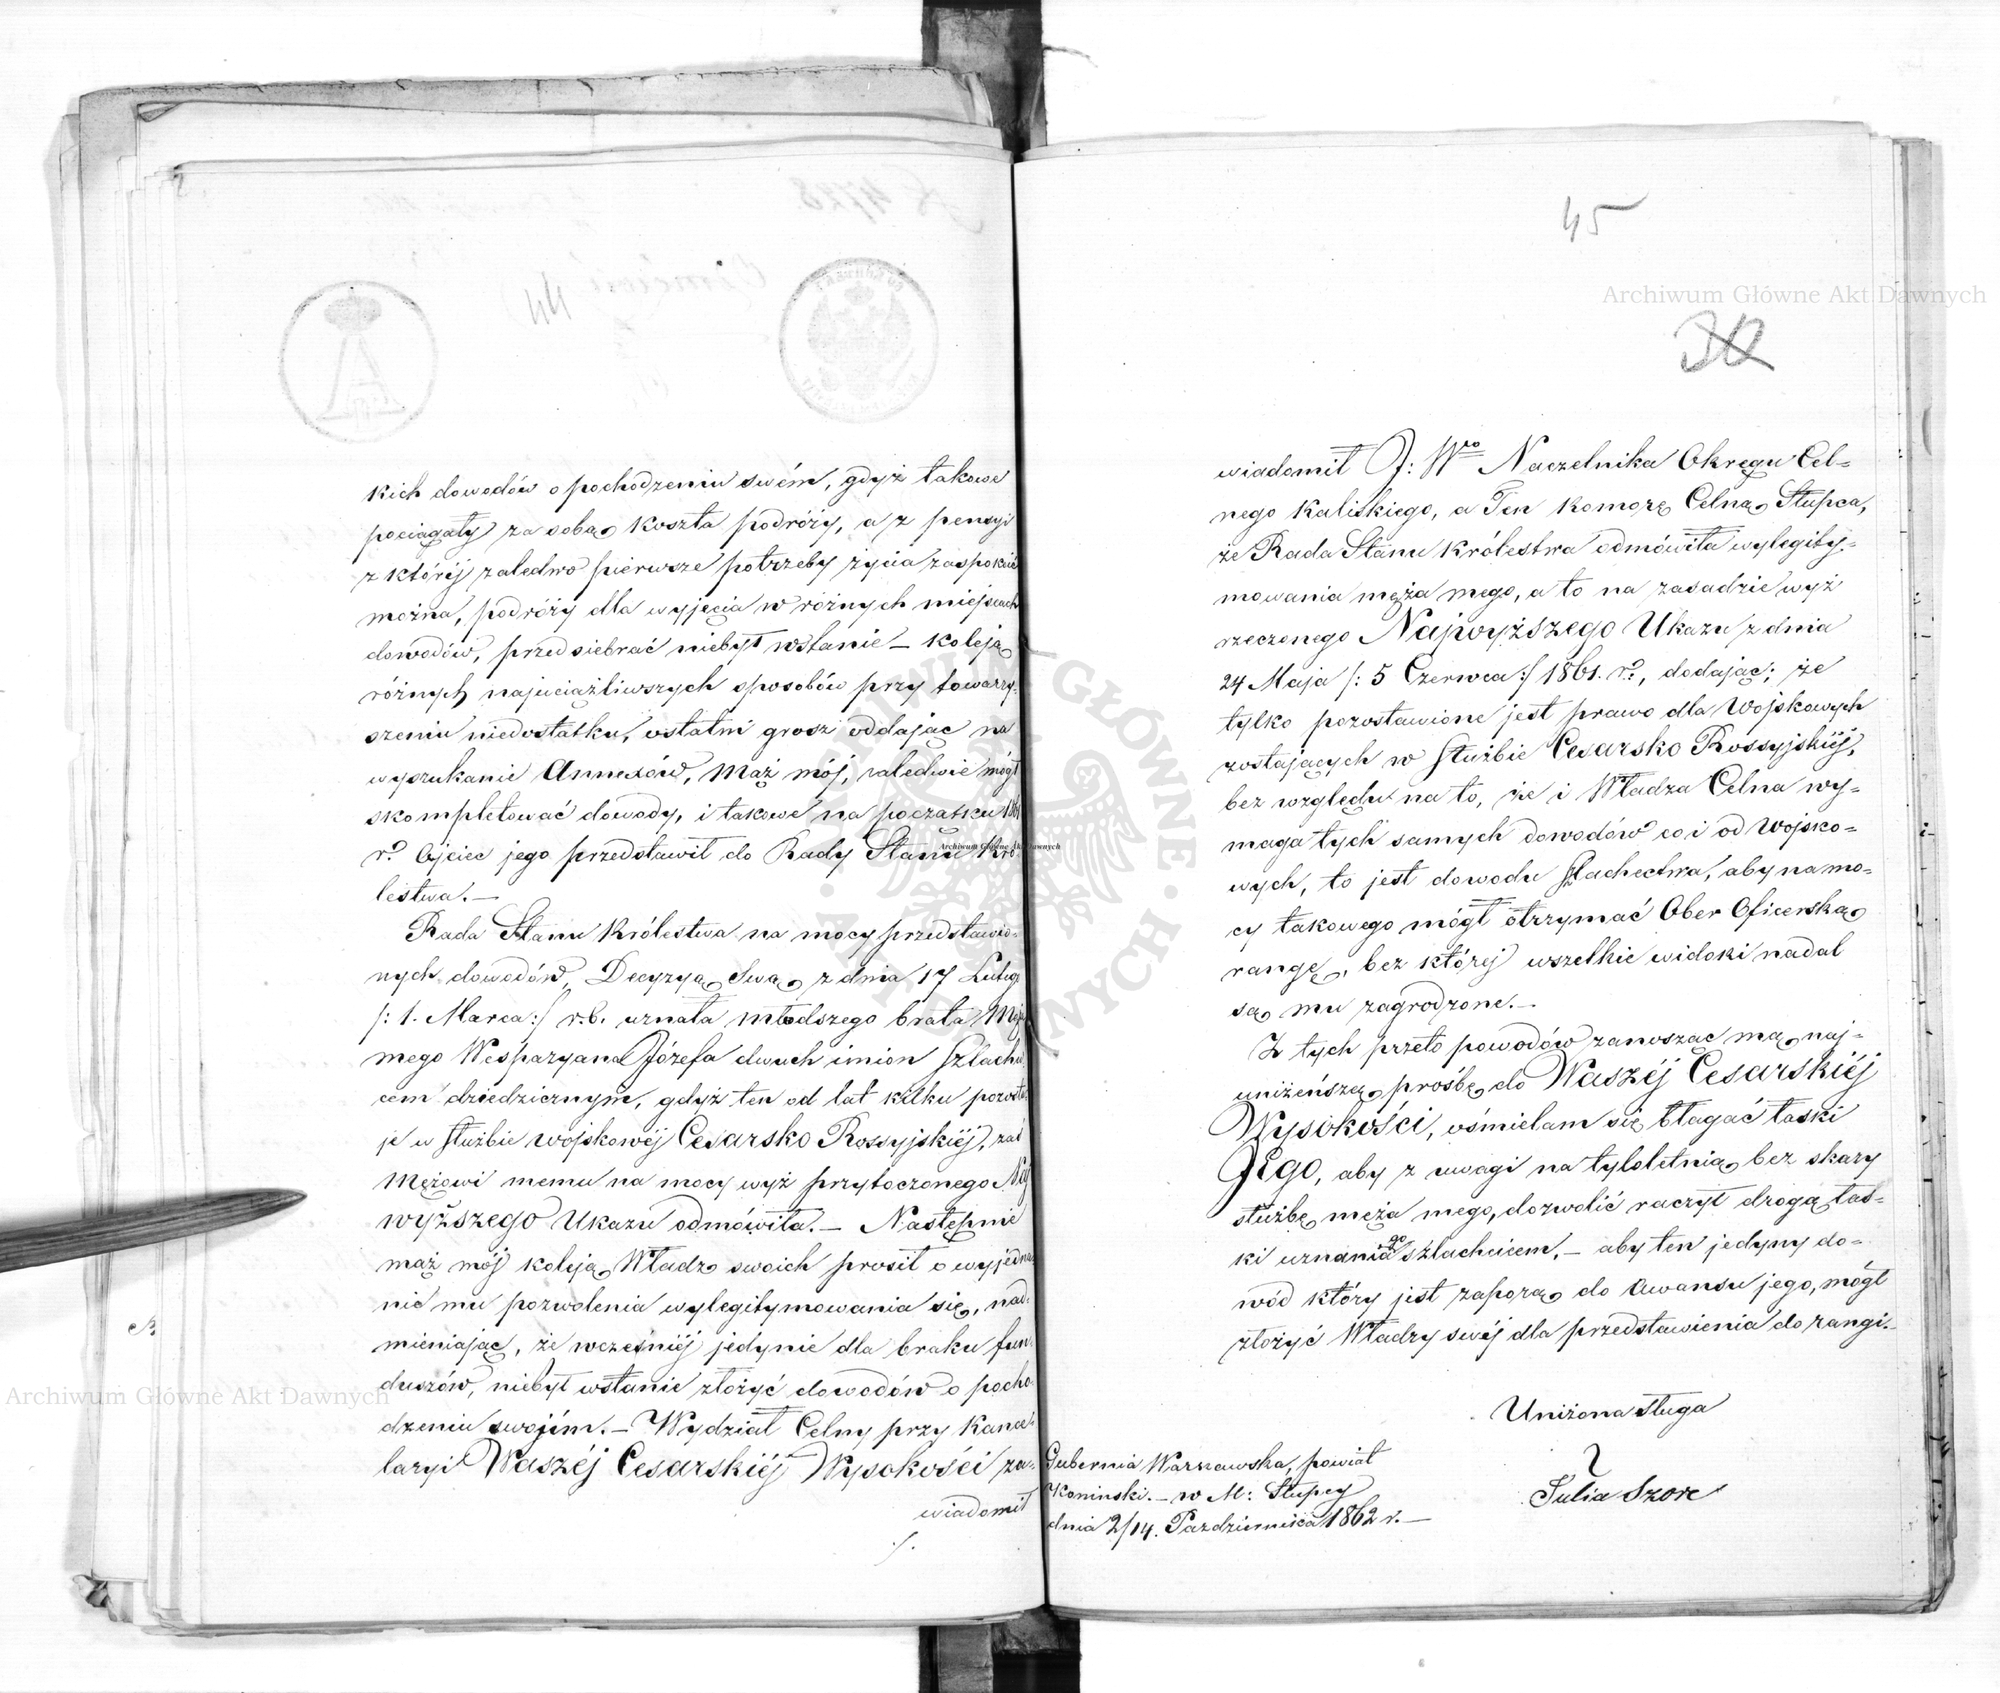 kich dowodów o pochodzeniu swém, gdyż takowe
pociągały za sobą koszta podróży, a z pensyi
z któréj zaledwo pierwsze potrzeby życia zaspokoić
można, podróży dla wyjęcia w różnych miejscach
dowodów, przedsiebrać niebył wstanie – koleją
różnych najuciążliwszych sposobów przy towarzy-
szeniu niedostatku, ostatni grosz oddając na
wyszukanie Annexów, Mąż mój, zaledwie mógł
skompletować dowody, i takowe na początku 1861
r° Ojciec jego przedstawił do Rady Stanu Kró-
lestwa. –
Rada Stanu Królestwa na mocy przedstawio-
nych dowodów, Decyzyą Swą z dnia 17 Lutego
/: 1. Marca :/ r.b. uznała młodszego brata Męża
mego Wespazyana Józefa dwuch imion Szlachci-
cem dziedzicznym, gdyż ten od lat kilku pozosta-
je w służbie wojskowéj Cesarsko Rossyjskiéj, zaś
Mężowi memu na mocy wyż przytoczonego Naj-
wyższego Ukazu odmówiła. – Następnie
mąż mój koleją Władz swoich prosił o wyjedna-
nie mu pozwolenia wylegitymowania się, nad-
mieniając, że wcześniéj jedynie dla braku fun-
duszów, niebył wstanie złożyć dowodów o pocho-
dzeniu swojém. – Wydział Celny przy Kance-
laryi Waszéj Cesarskiéj Wysokości za-
wiadomił
./.
45
30
wiadomił J: Wgo Naczelnika Okręgu Cel=
nego Kaliskiego, a Ten Komorę Celną Słupca,
że Rada Stanu Królestwa odmówiła wylegity-
mowania męża mego, a to na zasadzie wyż
rzeczonego Najwyższego Ukazu z dnia
24 Maja /: 5 Czerwca :/ 1861. r°, dodając; że
tylko pozostawione jest prawo dla Wojskowych
zostających w służbie Cesarsko Rossyjskiéj,
bez względu na to, że i Władza Celna wy=
maga tych samych dowodów co i od Wojsko=
wych, to jest dowodu Szlachectwa, aby na mo=
cy takowego mógł otrzymać Ober Oficerską
rangę, bez któréj wszelkie widoki nadal
są mu zagrodzone. –
Z tych przeto powodów zanosząc mą naj=
uniżeńszą prośbę do Waszéj Cesarskiéj
Wysokości, ośmielam się błagać łaski
Jego, aby z uwagi na tyloletnią bez skazy
służbę męża mego, dozwolić raczył drogą łas=
ki uznania go szlachcicem, – aby ten jedyny do=
wód który jest zaporą do Awansu jego, mógł
złożyć Władzy swéj dla przedstawienia do rangi. –
Uniżona sługa
Julia Szore
Gubernia Warszawska, powiat
Koninski. – w M: Słupcy
dnia 2/14. Pazdziernica 1862 r. –
Archiwum Główne Akt Dawnych
Archiwum Główne Akt Dawnych
Archiwum Główne Akt Dawnych